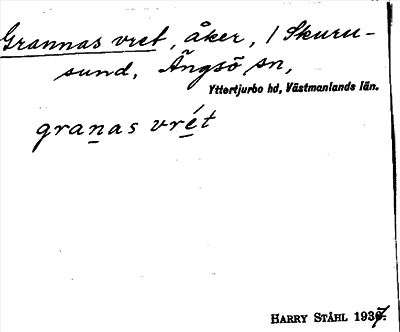 Grannas vret, åker, / Skuru-
sund, Ängsö sn,
Yttertjurbo hd, Västmanlands län.
gran̲as vré̲t
HARRY STÅHL 1937.